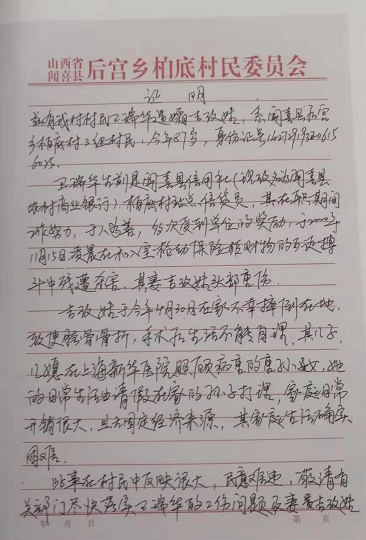 山西省
闻喜县 后宫乡柏底村民委员会
证 明
兹有我村村民卫瑞华遗孀吉改妹，系闻喜县后宫
乡柏底村三组村民，今年87岁，身份证号
卫瑞华生前是闻喜县信用社（现改为闻喜县
农村商业银行）柏底村站点信贷员，其在职期间
工作努力，于人为善，多次受到单位的奖励，于
11月15日凌晨在和入室抢劫保险柜财物的歹徒搏
斗中残遭杀害，其妻吉改妹头部重伤。
吉改妹于今年4月30日在家不幸摔倒在地，
致使髋骨骨折，手术后生活不能自理，其儿子
儿媳在上海新华医院照顾病重的唐孙女，她
的日常生活由请假在家的孙子打理，家庭日常
开销很大，且无固定经济来源，其家庭生活确实
困难。
此事在村民中反映很大，民意难违，敬请有
关部门尽快落实卫瑞华的工伤问题及妻吉改妹
年 月 日 第 页